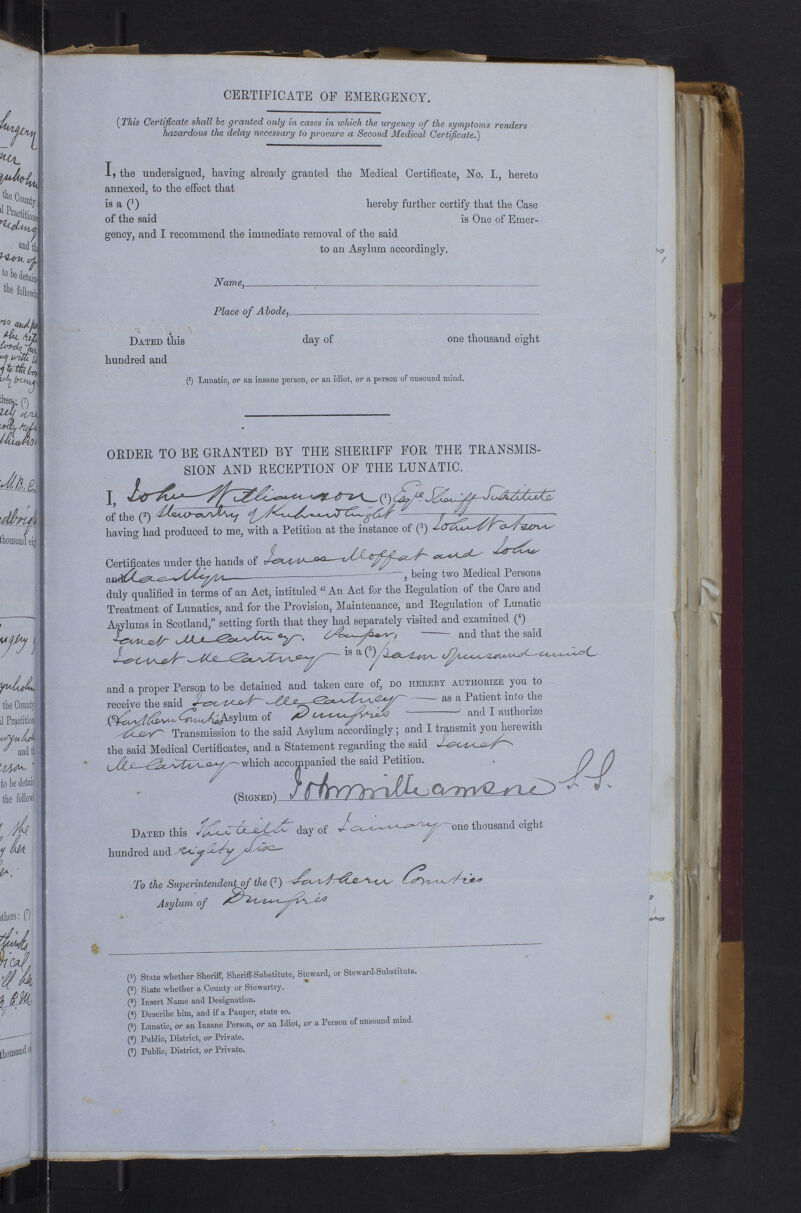 CERTIFICATE OF EMERGENCY.
(This Certificate shall be granted only in cases in which the urgency of the symptoms renders
hazardous the delay necessary to procure a Second Medical Certificate.)
I, the undersigned, having already granted the Medical Certificate, No. I., hereto
annexed, to the effect that
is a (¹) hereby further certify that the Case
of the said is One of Emer-
gency, and I recommend the immediate removal of the said
to an Asylum accordingly.
Name,
Place of Abode,
DATED this day of one thousand eight
hundred and
(¹) Lunatic, or an insane person, or an idiot, or a person of unsound mind.
ORDER TO BE GRANTED BY THE SHERIFF FOR THE TRANSMIS-
SION AND RECEPTION OF THE LUNATIC.
I, John Williamson (¹) Esqre Sheriff Substitute
of the (²) Stewartry of Kirkcudbright
having had produced to me, with a Petition at the instance of (³) John Watson
Certificates under the hands of James Moffat and John
and MacMyn, being two Medical Persons
duly qualified in terms of an Act, intituled "An Act for the Regulation of the Care and
Treatment of Lunatics, and for the Provision, Maintenance, and Regulation of Lunatic
Asylums in Scotland," setting forth that they had separately visited and examined (⁴)
Janet McCartney. Pauper, and that the said
Janet McCartney is a (⁵) person of unsound mind
and a proper Person to be detained and taken care of, DO HEREBY AUTHORIZE you to
receive the said Janet McCartney as a Patient into the
(⁶) Southern Counties Asylum of Dumfries and I authorize
her Transmission to the said Asylum accordingly; and I transmit you herewith
the said Medical Certificates, and a Statement regarding the said Janet
McCartney which accompanied the said Petition.
(SIGNED) John Williamson S.S.
DATED this Thirtieth day of January one thousand eight
hundred and eighty six
To the Superintendent of the (⁷) Southern Counties
Asylum of Dumfries
(¹) State whether Sheriff, Sheriff-Substitute, Steward, or Steward-Substitute.
(²) State whether a County or Stewartry.
(³) Insert Name and Designation.
(⁴) Describe him, and if a Pauper, state so.
(⁵) Lunatic, or an Insane Person, or an Idiot, or a Person of unsound mind.
(⁶) Public, District, or Private.
(⁷) Public, District, or Private.